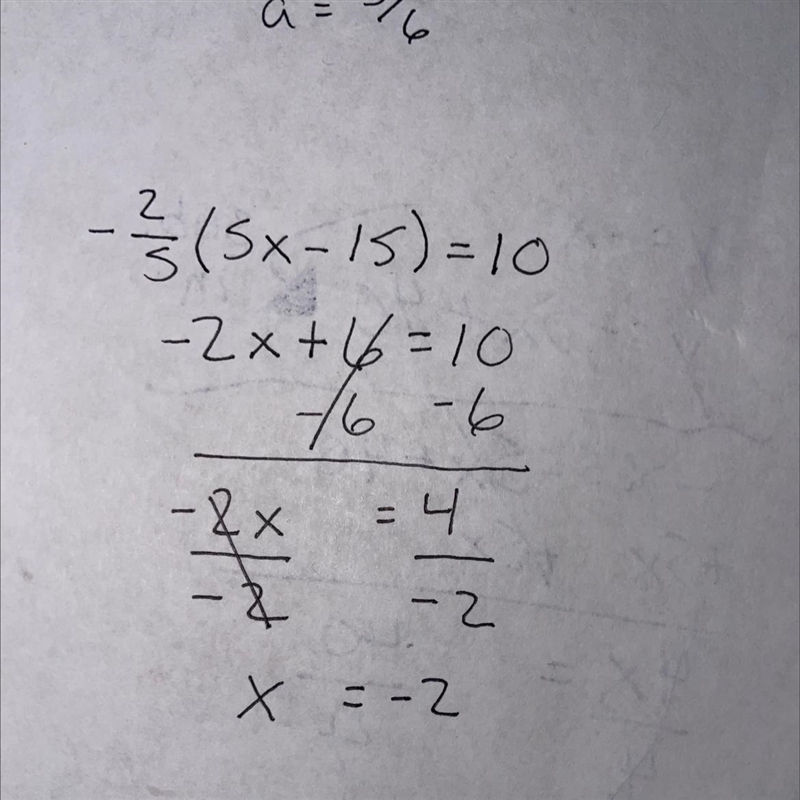 a =
-2/5(5x-15)=10
-2x+6=10
-6 -6
-2x = 4
-2 -2
x = -2